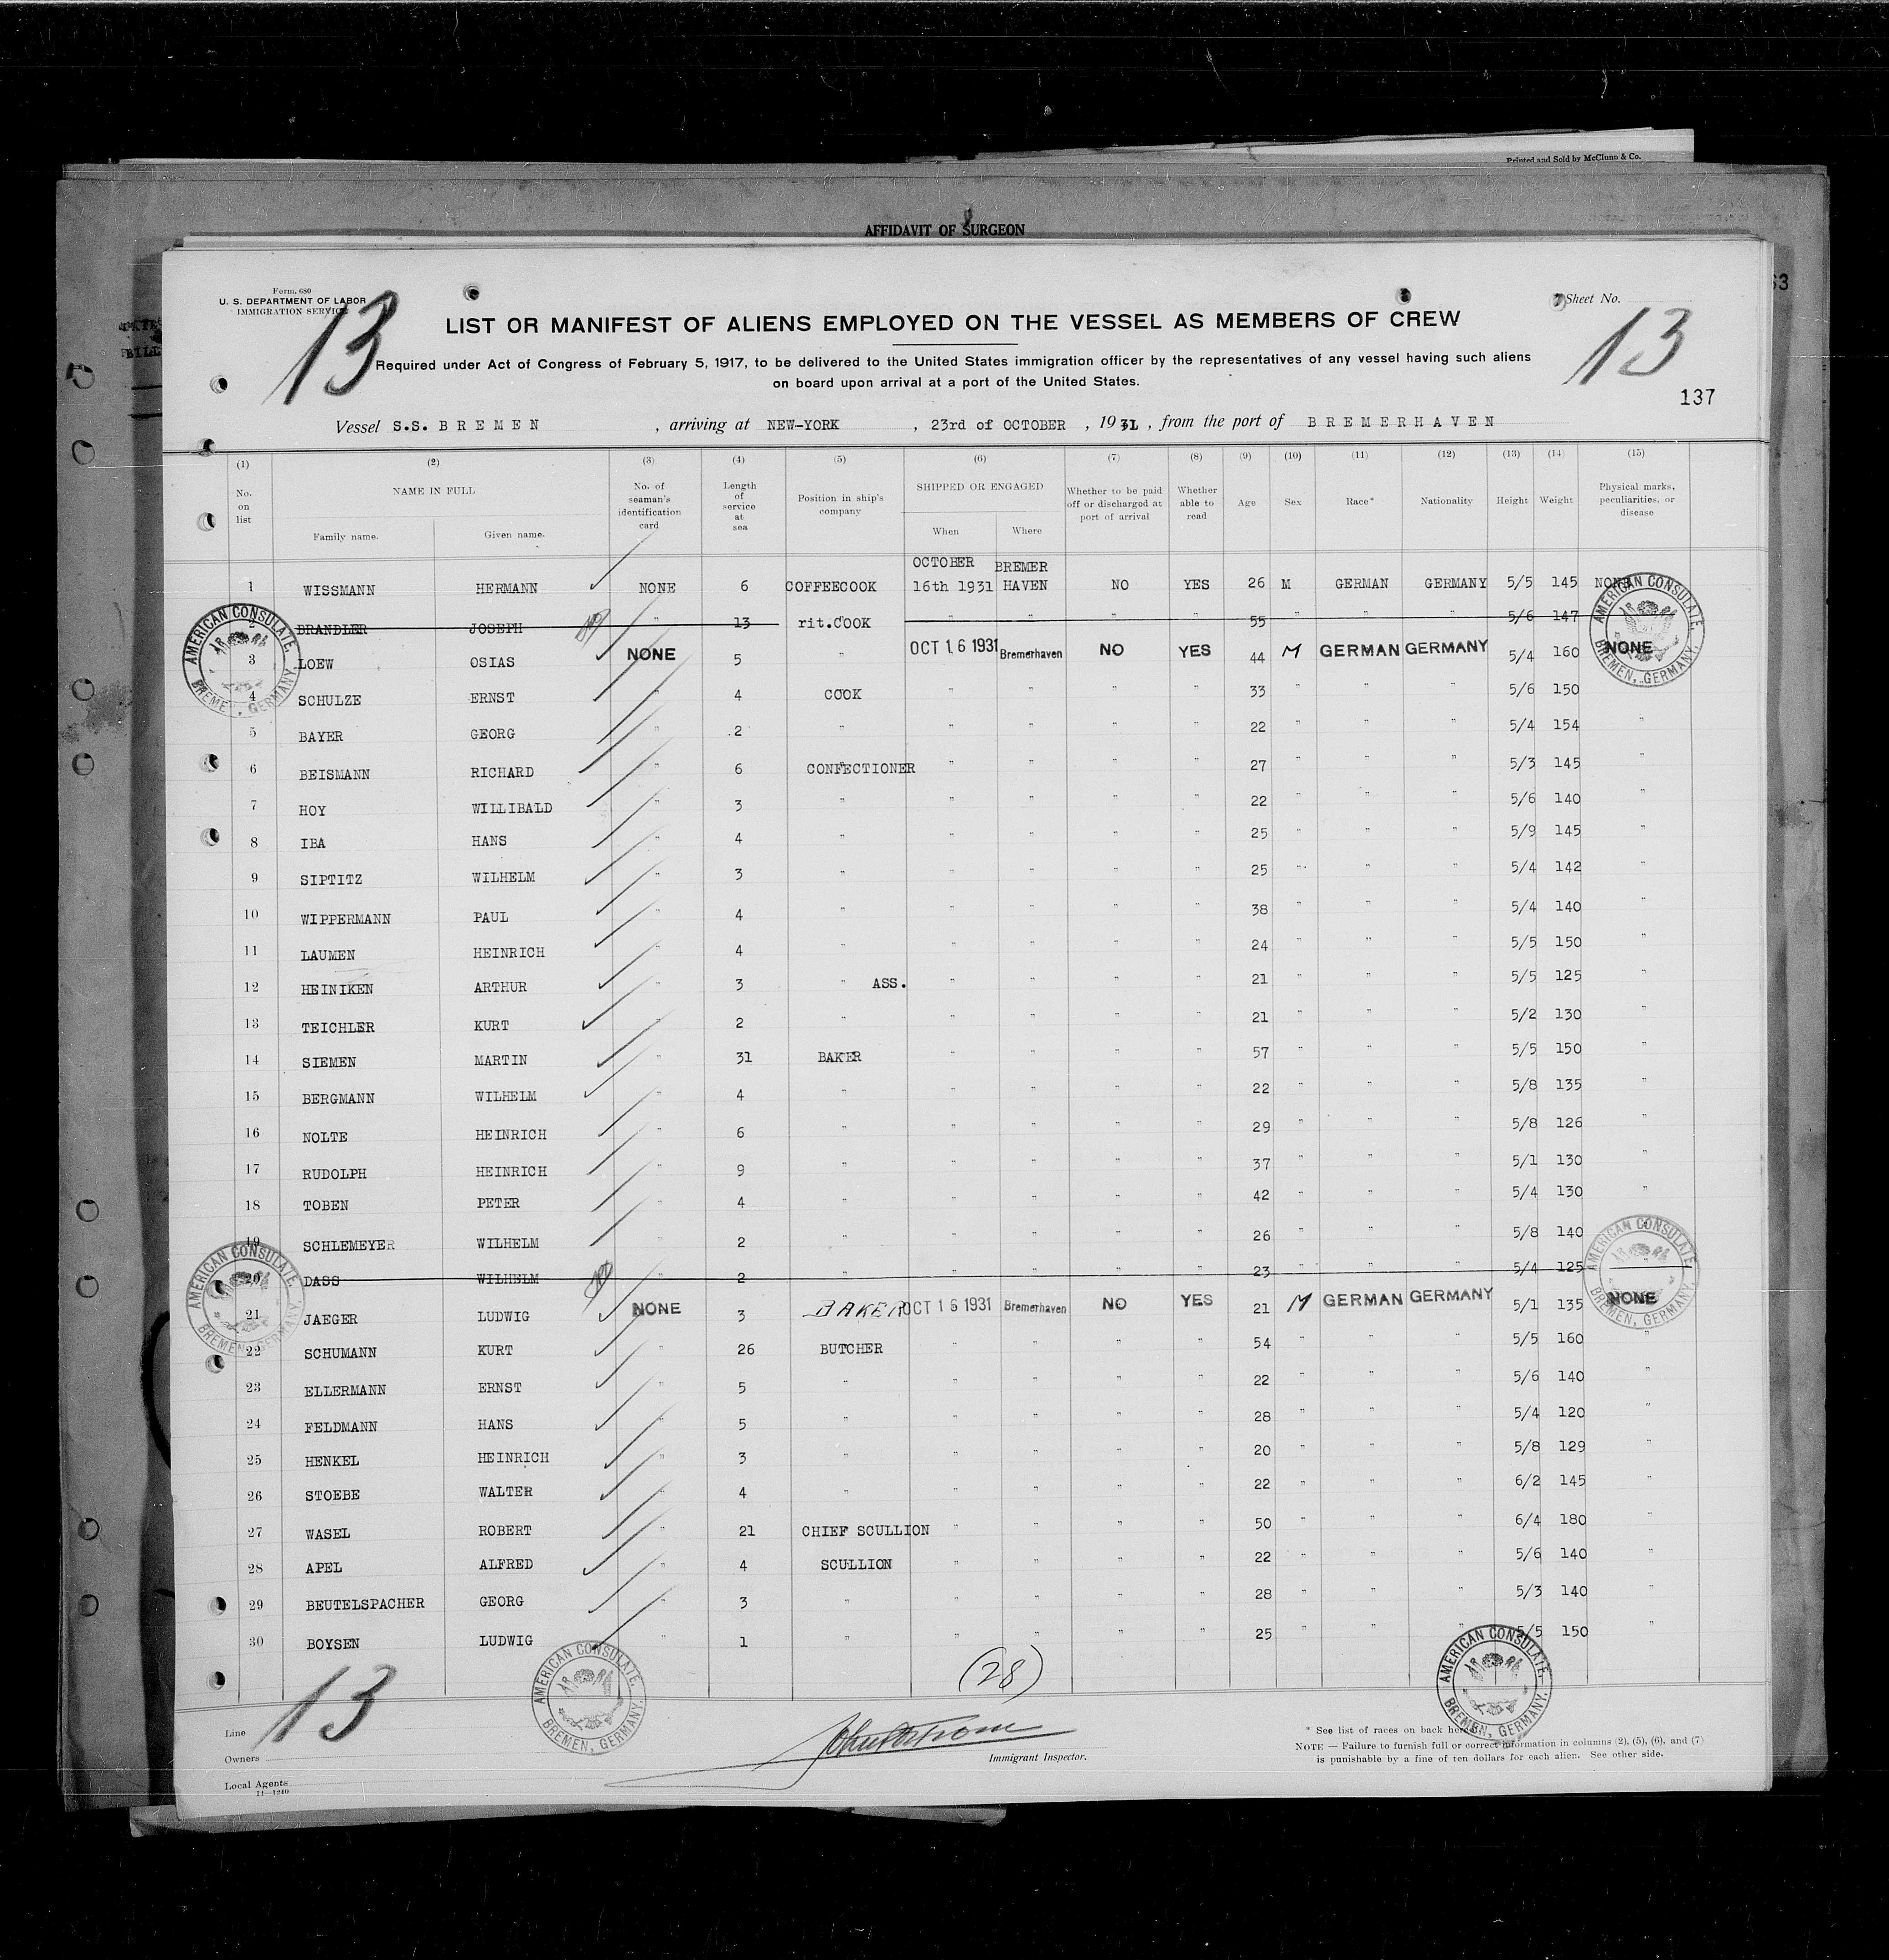 Printed and Sold by McClunn & Co.
AFFIDAVIT OF SURGEON
63
Form. 680
U. S. DEPARTMENT OF LABOR
IMMIGRATION SERVICE
Sheet No.
13
13
LIST OR MANIFEST OF ALIENS EMPLOYED ON THE VESSEL AS MEMBERS OF CREW
Required under Act of Congress of February 5, 1917, to be delivered to the United States immigration officer by the representatives of any vessel having such aliens
on board upon arrival at a port of the United States.
137
Vessel S.S. BREMEN , arriving at NEW-YORK , 23rd of OCTOBER , 1931 , from the port of BREMERHAVEN
(1) (2) (3) (4) (5) (6) (7) (8) (9) (10) (11) (12) (13) (14) (15)
No. on list NAME IN FULL Family name. Given name. No. of seaman's identification card Length of service at sea Position in ship's company SHIPPED OR ENGAGED When Where Whether to be paid off or discharged at port of arrival Whether able to read Age Sex Race* Nationality Height Weight Physical marks, peculiarities, or disease
OCTOBER BREMER
1 WISSMANN HERMANN NONE 6 COFFEECOOK 16th 1931 HAVEN NO YES 26 M GERMAN GERMANY 5/5 145 NONE
2 BRANDLER JOSEPH " 13 rit.COOK " " " " 55 " " " 5/6 147
3 LOEW OSIAS NONE 5 " OCT 16 1931 Bremerhaven NO YES 44 M GERMAN GERMANY 5/4 160 NONE
4 SCHULZE ERNST " 4 COOK " " " " 33 " " " 5/6 150
5 BAYER GEORG " 2 " " " " " 22 " " " 5/4 154 "
6 BEISMANN RICHARD " 6 CONFECTIONER " " " " 27 " " " 5/3 145 "
7 HOY WILLIBALD " 3 " " " " " 22 " " " 5/6 140 "
8 IBA HANS " 4 " " " " " 25 " " " 5/9 145 "
9 SIPTITZ WILHELM " 3 " " " " " 25 " " " 5/4 142 "
10 WIPPERMANN PAUL " 4 " " " " " 38 " " " 5/4 140 "
11 LAUMEN HEINRICH " 4 " " " " " 24 " " " 5/5 150 "
12 HEINIKEN ARTHUR " 3 " ASS. " " " " 21 " " " 5/5 125 "
13 TEICHLER KURT " 2 " " " " " 21 " " " 5/2 130 "
14 SIEMEN MARTIN " 31 BAKER " " " " 57 " " " 5/5 150 "
15 BERGMANN WILHELM " 4 " " " " " 22 " " " 5/8 135 "
16 NOLTE HEINRICH " 6 " " " " " 29 " " " 5/8 126 "
17 RUDOLPH HEINRICH " 9 " " " " " 37 " " " 5/1 130 "
18 TOBEN PETER " 4 " " " " " 42 " " " 5/4 130 "
19 SCHLEMEYER WILHELM " 2 " " " " " 26 " " " 5/8 140 "
20 DASS WILHELM " 2 " " " " " 23 " " " 5/4 125 "
21 JAEGER LUDWIG NONE 3 BAKER OCT 16 1931 Bremerhaven NO YES 21 M GERMAN GERMANY 5/1 135 NONE
22 SCHUMANN KURT " 26 BUTCHER " " " " 54 " " " 5/5 160 "
23 ELLERMANN ERNST " 5 " " " " " 22 " " " 5/6 140 "
24 FELDMANN HANS " 5 " " " " " 28 " " " 5/4 120 "
25 HENKEL HEINRICH " 3 " " " " " 20 " " " 5/8 129 "
26 STOEBE WALTER " 4 " " " " " 22 " " " 6/2 145 "
27 WASEL ROBERT " 21 CHIEF SCULLION " " " " 50 " " " 6/4 180 "
28 APEL ALFRED " 4 SCULLION " " " " 22 " " " 5/6 140 "
29 BEUTELSPACHER GEORG " 3 " " " " " 28 " " " 5/3 140 "
30 BOYSEN LUDWIG " 1 " " " " " 25 " " " 5/5 150 "
AMERICAN CONSULATE, BREMEN, GERMANY.
AMERICAN CONSULATE, BREMEN, GERMANY.
AMERICAN CONSULATE, BREMEN, GERMANY.
AMERICAN CONSULATE, BREMEN, GERMANY.
AMERICAN CONSULATE, BREMEN, GERMANY.
AMERICAN CONSULATE, BREMEN, GERMANY.
(28)
13
Line
Owners
Local Agents
14—1240
Immigrant Inspector.
* See list of races on back hereof.
NOTE — Failure to furnish full or correct information in columns (2), (5), (6), and (7)
is punishable by a fine of ten dollars for each alien. See other side.